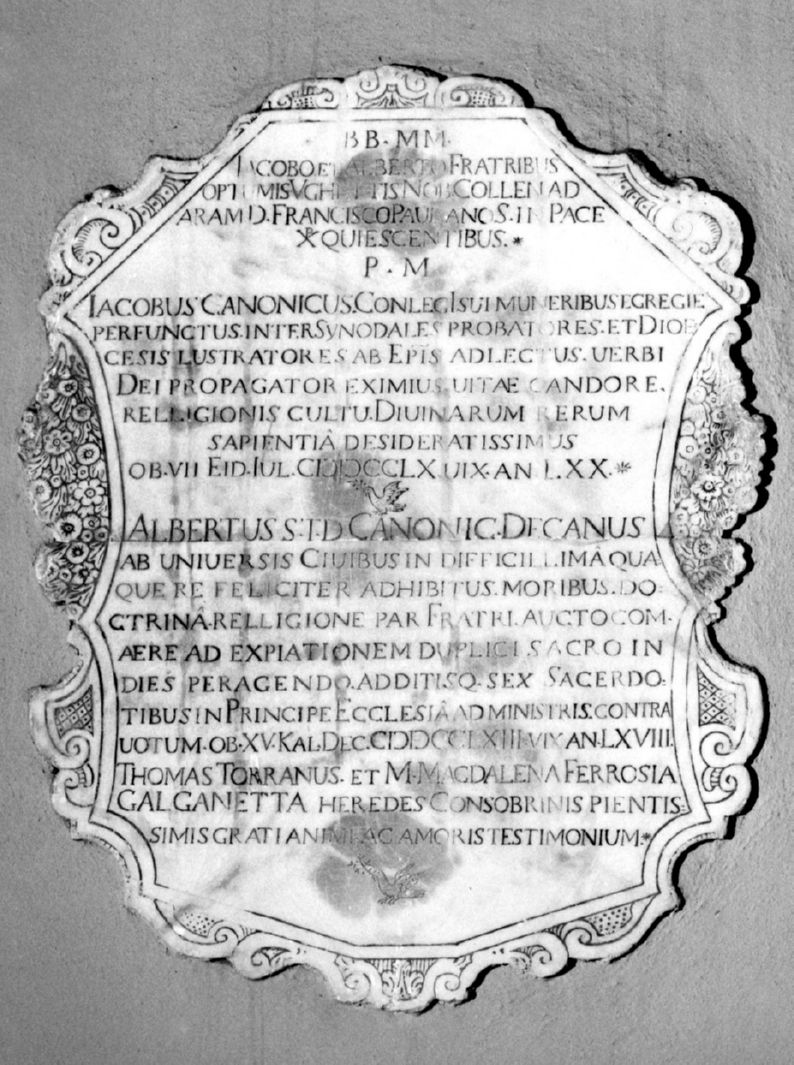 BB·MM·
IACOBO ET ALBERTO FRATRIBUS
OPTUMIS VGHETTIS NOB. COLLEN AD
ARAM D. FRANCISCO PAULANO S. IN PACE
QUIESCENTIBUS.*
P·M
IACOBUS CANONICUS. CONLEGI SUI MUNERIBUS EGREGIE
PERFUNCTUS. INTER SYNODALES PROBATORES. ET DIOE
CESIS LUSTRATORES AB EPIS ADLECTUS. UERBI
DEI PROPAGATOR EXIMIUS. UITAE CANDORE.
RELLIGIONIS CULTU. DIUINARUM RERUM
SAPIENTIÂ DESIDERATISSIMUS
OB. VII EID. IUL. CIↃIↃCCLX UIX. AN LXX.*
ALBERTUS S.T.D CANONIC. DECANUS
AB UNIUERSIS CIUIBUS IN DIFFICILLIMÂ QUA
QUE RE FELICITER ADHIBITUS. MORIBUS. DO
CTRINÂ. RELLIGIONE PAR FRATRI. AUCTO COM·
AERE AD EXPIATIONEM DUPLICI SACRO IN
DIES PERAGENDO. ADDITISQ. SEX SACERDO:
TIBUS IN PRINCIPE ECCLESIÂ ADMINISTRIS. CONTRA
UOTUM. OB. XV. KAL. DEC. CIↃIↃCCLXIII. VIX AN. LXVIII.
THOMAS TORRANUS. ET M. MAGDALENA FERROSIA
GALGANETTA HEREDES CONSOBRINIS PIENTIS:
SIMIS GRATI ANIMI AC AMORIS TESTIMONIUM.*